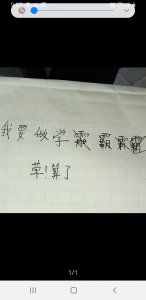 我要做学霸
草!算了
1/1